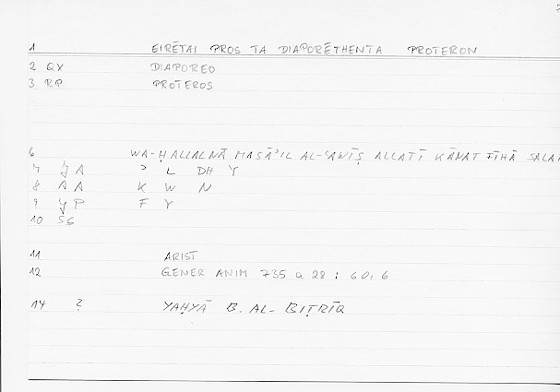 1 EIRĒTAI PROS TA DIAPORĒTHENTA PROTERON
2 QX DIAPOREO
3 RP PROTEROS
6 WA-ḤALLALNĀ MASĀʾIL AL-ʿAWĪṢ ALLATĪ KĀNAT FĪHĀ
7 JA ʾ L DH Y
8 AA K W N
9 JP F Y
10 SG
11 ARIST
12 GENER ANIM 735 a 28 ; 60,6
14 ? YAḤYĀ B. AL-BIṬRĪQ